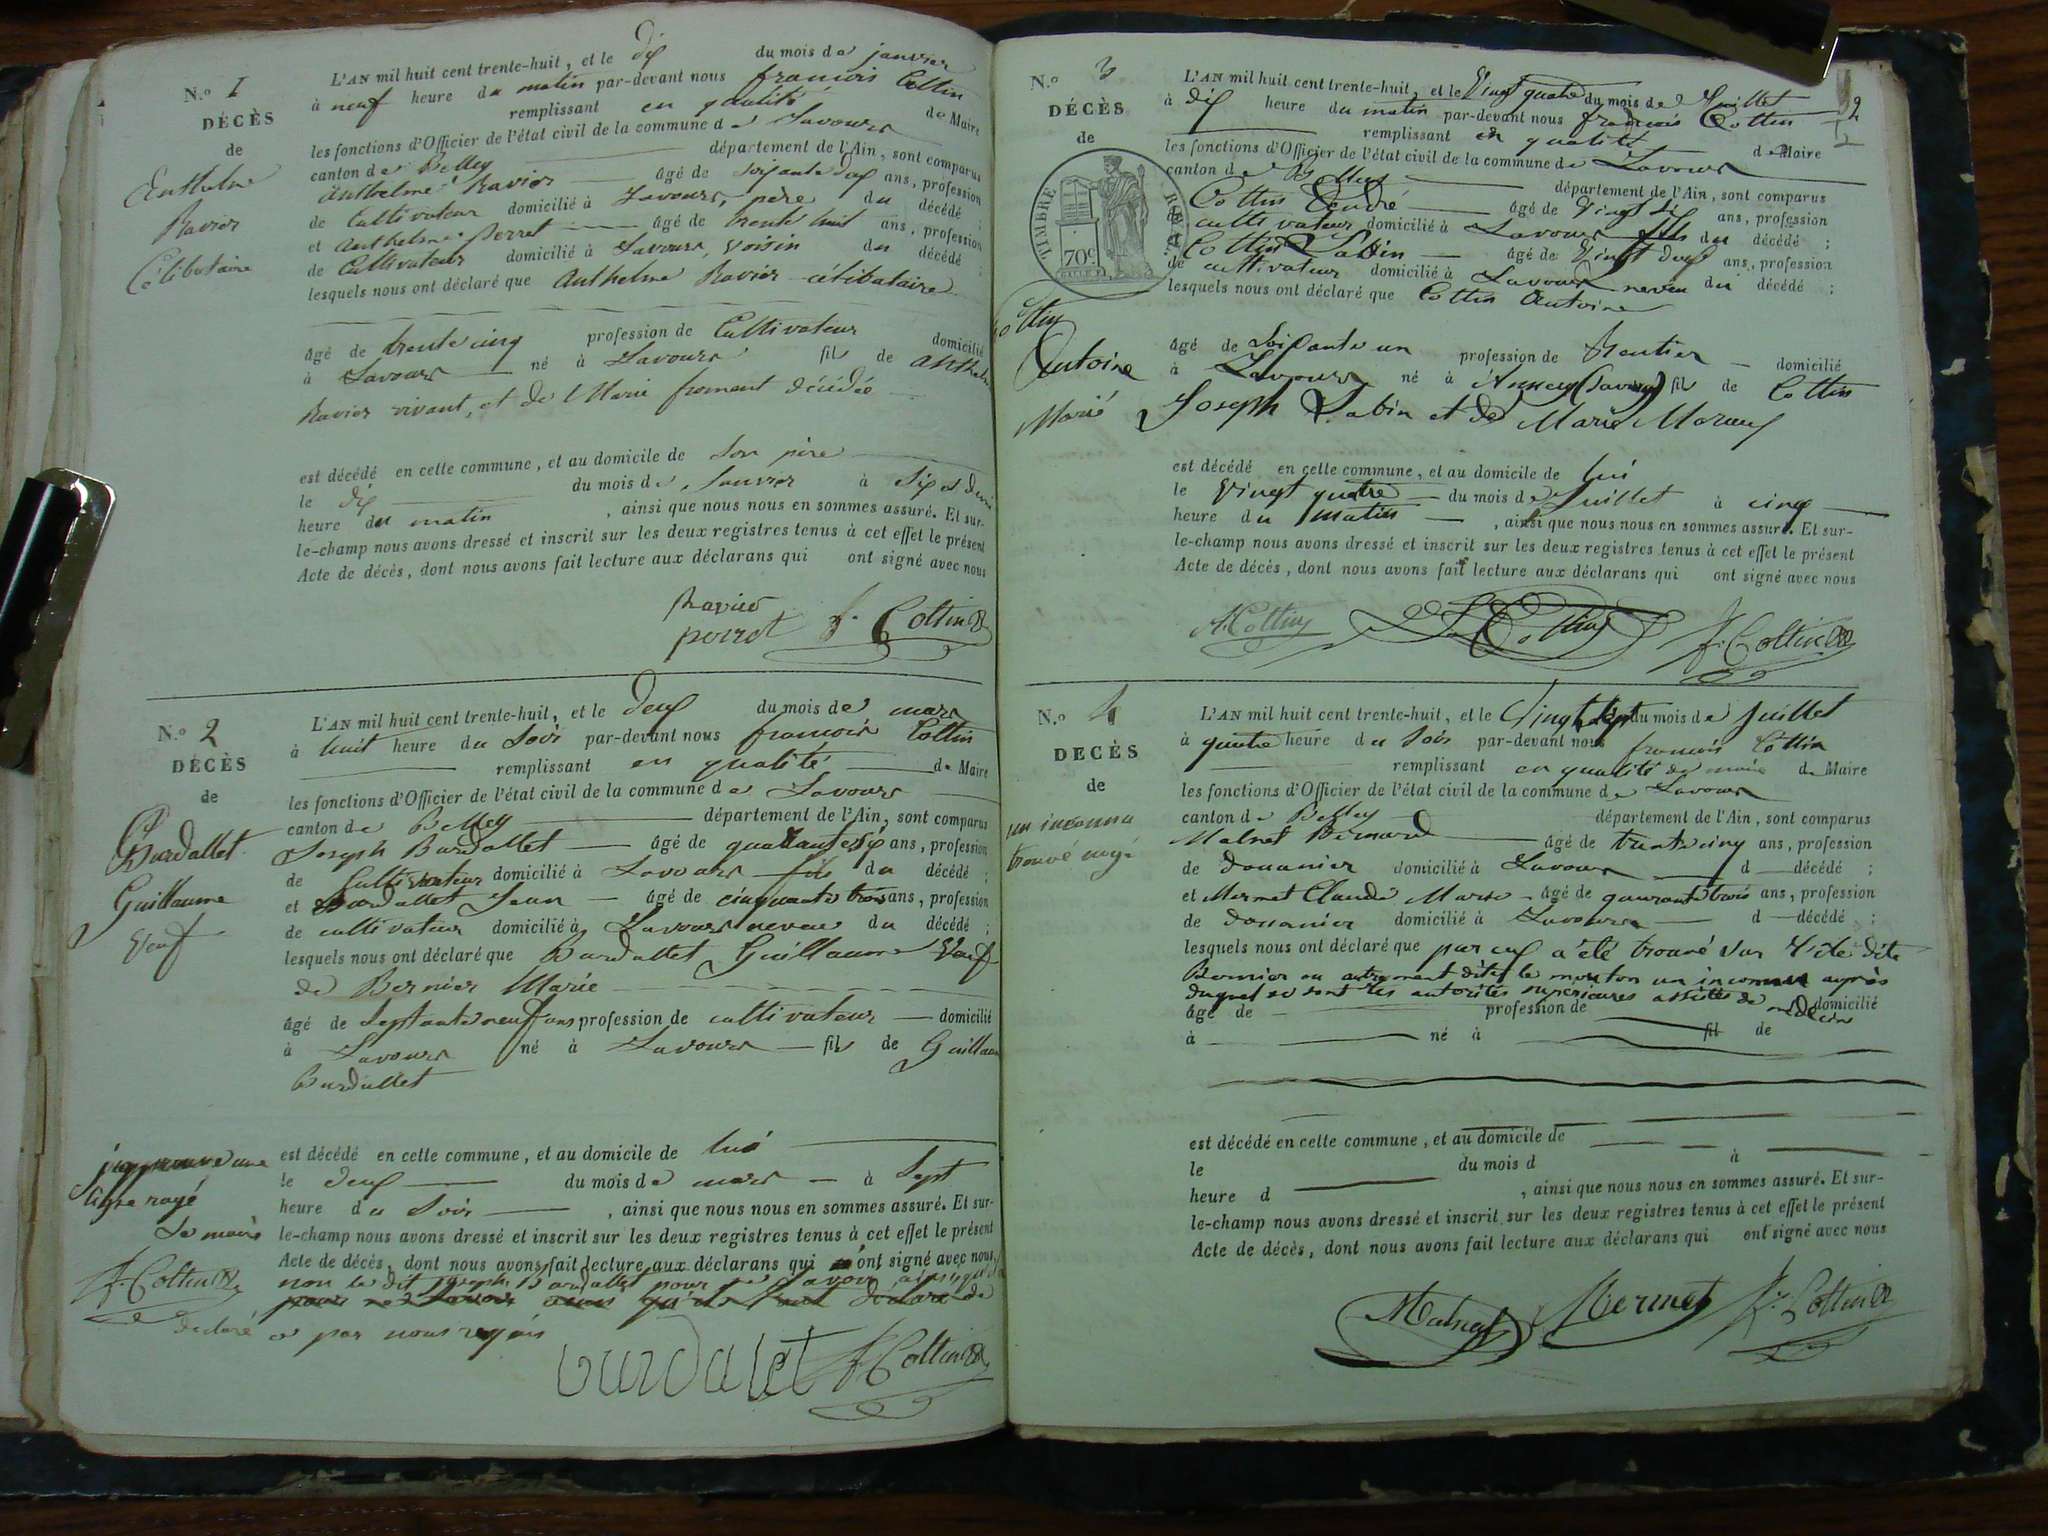 N.o 1
DÉCÈS
de
Anthelme
Ravier
Célibataire
L'AN mil huit cent trente-huit, et le dix du mois de janvier
à neuf heure du matin par-devant nous francois Cottin
remplissant en qualité de Maire
les fonctions d'Officier de l'état civil de la commune de Lavours
canton de Belley département de l'Ain, sont comparus
Anthelme Ravier âgé de Soixante dix ans, profession
de Cultivateur domicilié à Lavours, père du décédé ;
et Anthelme Perret âgé de trente huit ans, profession
de Cultivateur domicilié à Lavours, voisin du décédé ;
lesquels nous ont déclaré que Anthelme Ravier célibataire
âgé de trente cinq profession de Cultivateur domicilié
à Lavours né à Lavours fils de Anthelme
Ravier vivant, et de Marie froment décédée
est décédé en cette commune, et au domicile de Son père
le dix du mois de Janvier à Six et demi
heure du matin, ainsi que nous nous en sommes assuré. Et sur-
le-champ nous avons dressé et inscrit sur les deux registres tenus à cet effet le présent
Acte de décès, dont nous avons fait lecture aux déclarans qui ont signé avec nous
Ravier
perret f. Cottin
N.o 2
DÉCÈS
de
Burdallet
Guillaume
Veuf
L'AN mil huit cent trente-huit, et le deux du mois de mars
à huit heure du Soir par-devant nous francois Cottin
remplissant en qualité de Maire
les fonctions d'Officier de l'état civil de la commune de Lavours
canton de Belley département de l'Ain, sont comparus
Joseph Burdallet âgé de quarante Six ans, profession
de Cultivateur domicilié à Lavours fils du décédé ;
et Burdallet Jean âgé de cinquante trois ans, profession
de cultivateur domicilié à Lavours neveu du décédé ;
lesquels nous ont déclaré que Burdallet Guillaume Veuf
de Bernier Marie
âgé de Septante neuf ans profession de cultivateur domicilié
à Lavours né à Lavours fils de Guillaume
Burdallet
est décédé en cette commune, et au domicile de lui
le deux du mois de mars à Sept
heure du Soir, ainsi que nous nous en sommes assuré. Et sur-
le-champ nous avons dressé et inscrit sur les deux registres tenus à cet effet le présent
Acte de décès, dont nous avons fait lecture aux déclarans qui ont signé avec nous,
non le dit joseph Burdallet pour ne Savoir ainsi qu'il
pour ne Savoir ainsi qu'il l'ont déclaré de
déclaré ce par nous
j'approuve une
ligne rayé
Le maire
f. Cottin
burdalet f. Cottin
N.o 3
DÉCÈS
de
TIMBRE ROYAL
70c
Cottin
Antoine
Marié
L'AN mil huit cent trente-huit, et le Vingt quatre du mois de Juillet
à dix heure du matin par-devant nous francois Cottin
remplissant en qualité de Maire
les fonctions d'Officier de l'état civil de la commune de Lavours
canton de Belley département de l'Ain, sont comparus
Cottin André âgé de Vingt Six ans, profession
de cultivateur domicilié à Lavours fils du décédé ;
Cottin Sabin âgé de Vingt deux ans, profession
de cultivateur domicilié à Lavours neveu du décédé ;
lesquels nous ont déclaré que Cottin Antoine
âgé de Soixante un profession de Rentier domicilié
à Lavours né à Annecy (Savoie) fils de Cottin
Joseph Sabin et de Marie
est décédé en cette commune, et au domicile de lui
le Vingt quatre du mois de Juillet à cinq
heure du matin, ainsi que nous nous en sommes assuré. Et sur-
le-champ nous avons dressé et inscrit sur les deux registres tenus à cet effet le présent
Acte de décès, dont nous avons fait lecture aux déclarans qui ont signé avec nous
A. Cottin S. Cottin f. Cottin
N.o 4
DECÈS
de
un inconnu
trouvé noyé
L'AN mil huit cent trente-huit, et le Vingt Sept du mois de Juillet
à quatre heure du Soir par-devant nous francois Cottin
remplissant en qualité de maire de Maire
les fonctions d'Officier de l'état civil de la commune de Lavours
canton de Belley département de l'Ain, sont comparus
Malnet Bernard âgé de trente cinq ans, profession
de Douanier domicilié à Lavours d décédé ;
et Mermet Claude Marie âgé de quarante trois ans, profession
de Douanier domicilié à Lavours d décédé ;
lesquels nous ont déclaré que par eux a été trouvé sur l'île dite
Bernier ou autrement dite le mouton un inconnu auprès
duquel se sont les autorités supérieures assistés de médecin
âgé de profession de domicilié
à né à fil de
est décédé en cette commune, et au domicile de
le du mois d à
heure d, ainsi que nous nous en sommes assuré. Et sur-
le-champ nous avons dressé et inscrit sur les deux registres tenus à cet effet le présent
Acte de décès, dont nous avons fait lecture aux déclarans qui ont signé avec nous
Malnet Mermet f. Cottin